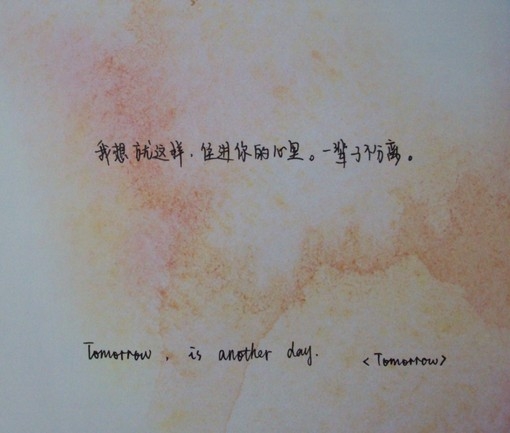 我想就这样,住进你的心里。一辈子不分离。
Tomorrow, is another day. <Tomorrow>